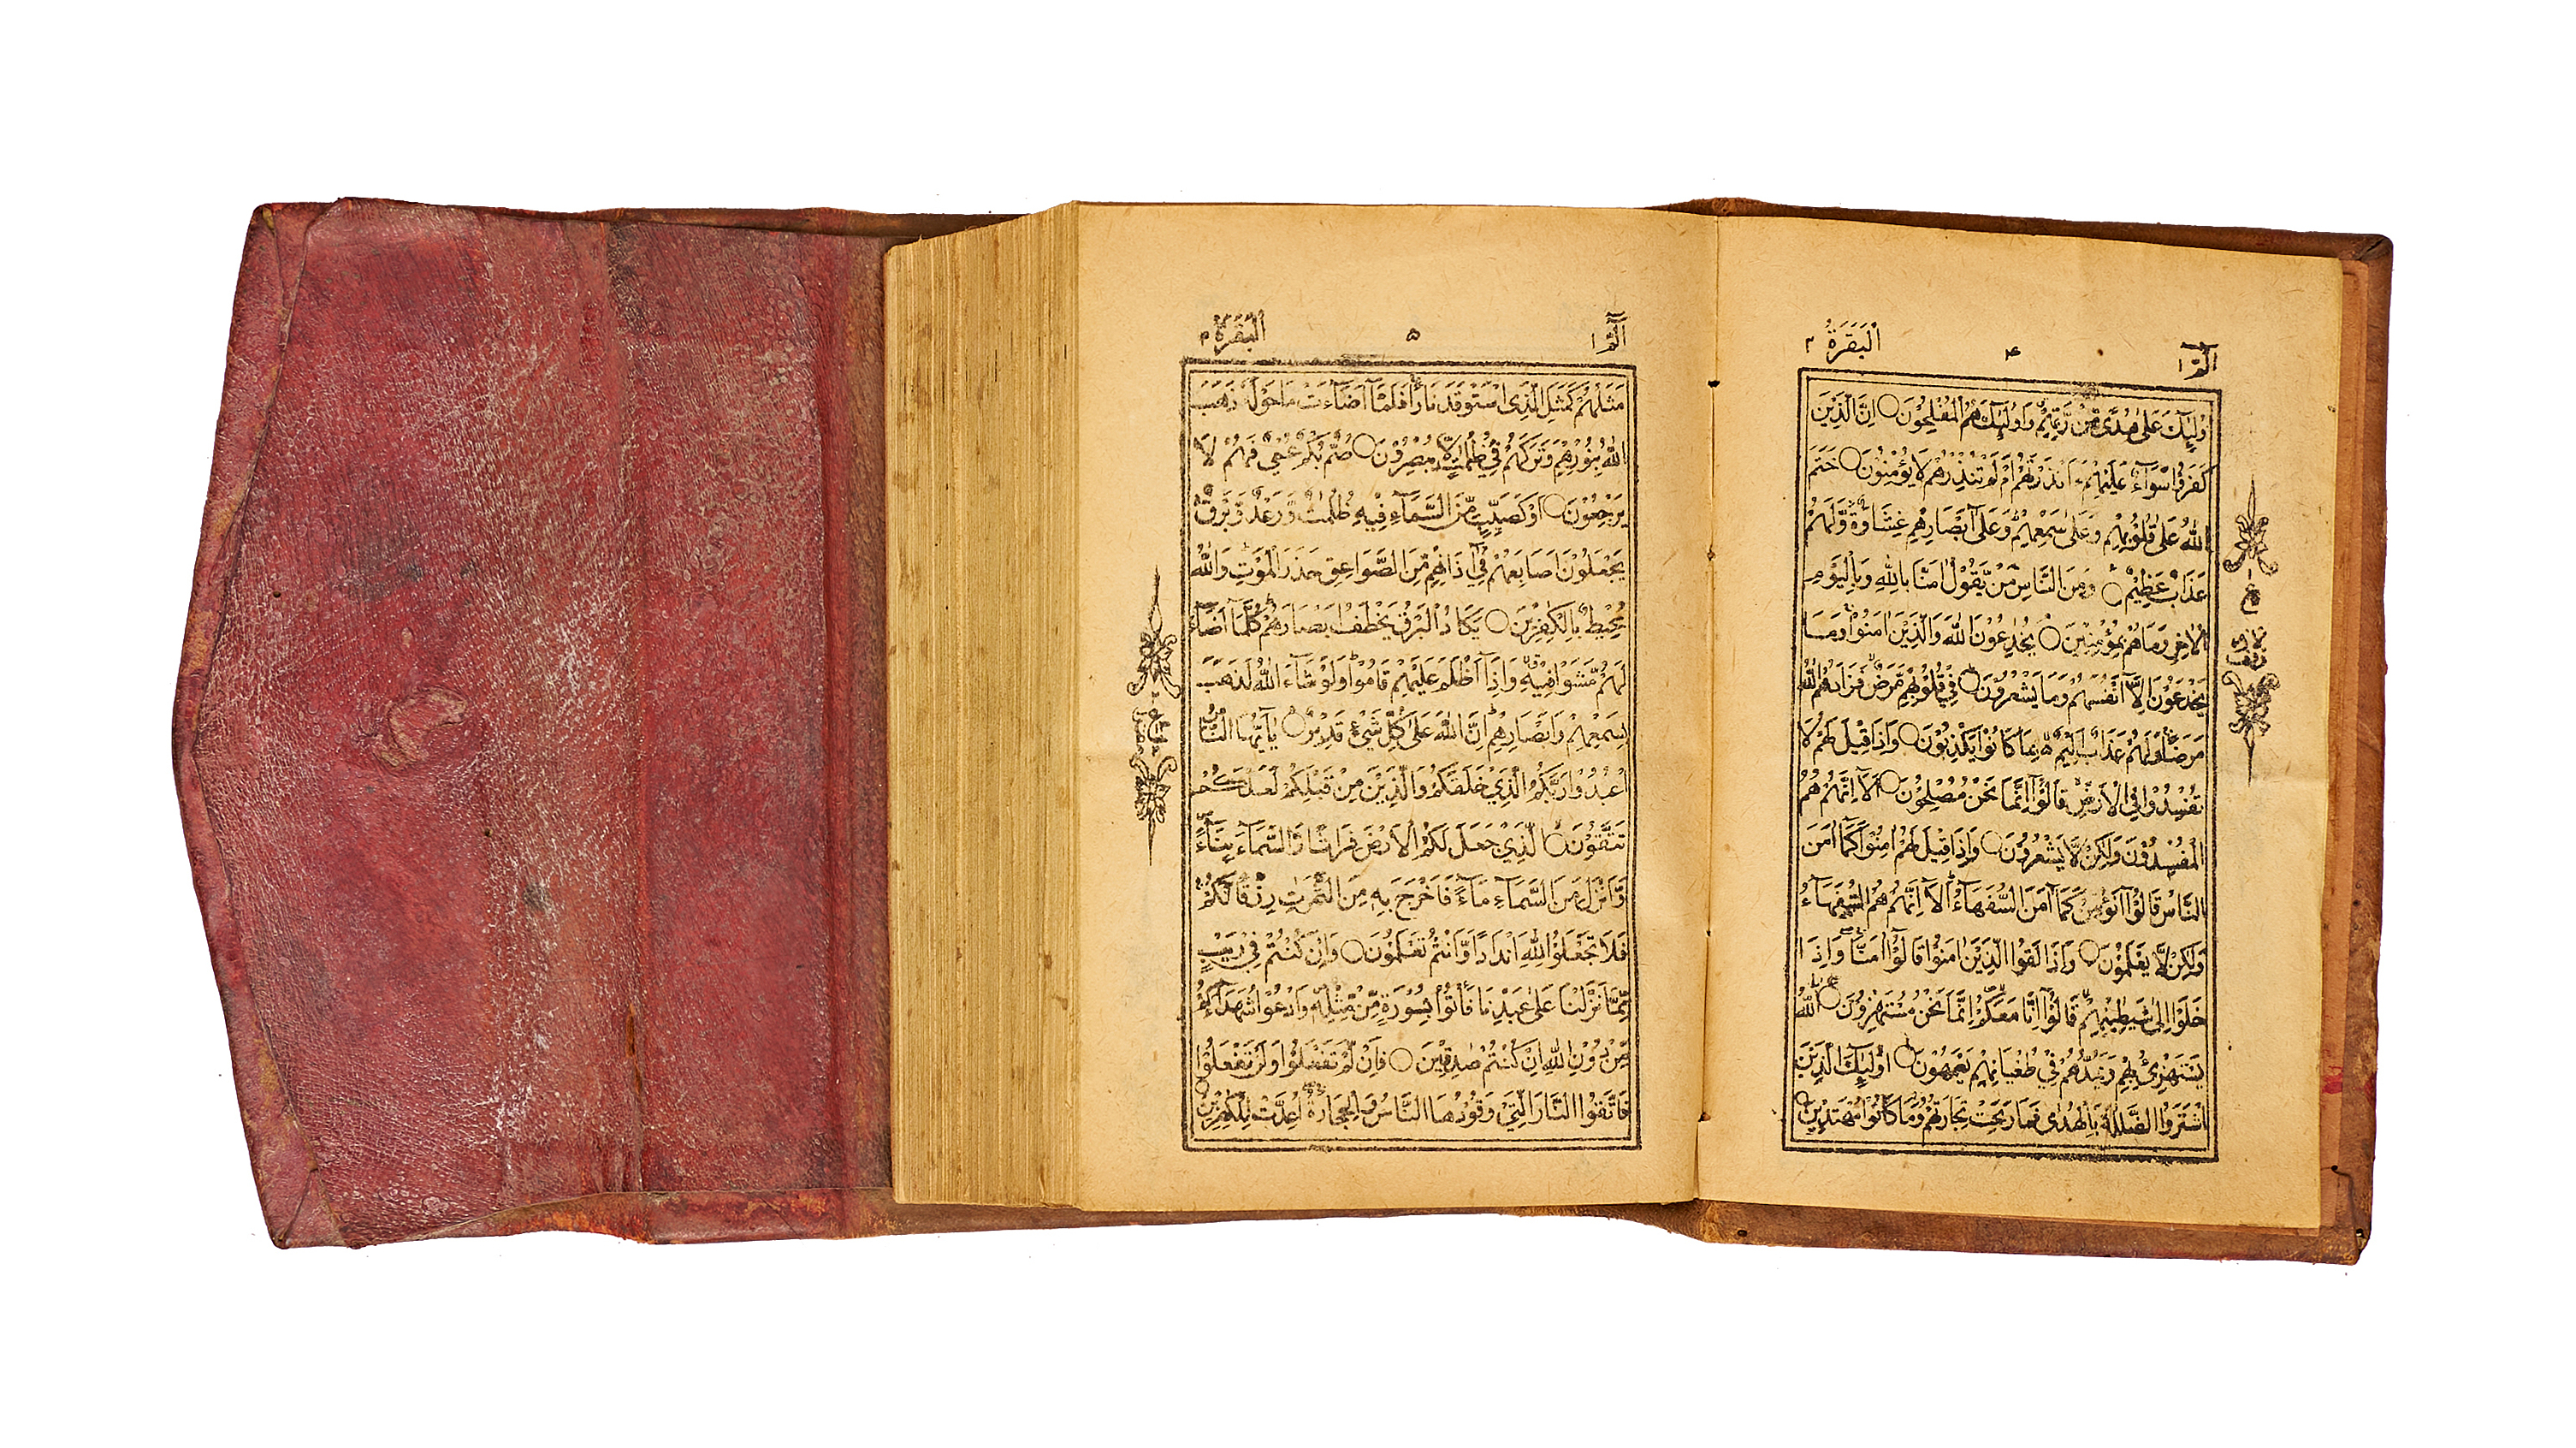 الٓمّٓ ١
۴
اَلْبَقَرَةُ ٢
اُولٰٓئِكَ عَلٰى هُدًى مِّنْ رَّبِّهِمْ وَاُولٰٓئِكَ هُمُ الْمُفْلِحُوْنَ ○ اِنَّ الَّذِيْنَ
كَفَرُوْا سَوَآءٌ عَلَيْهِمْ ءَاَنْذَرْتَهُمْ اَمْ لَمْ تُنْذِرْهُمْ لَا يُؤْمِنُوْنَ ○ خَتَمَ
اللّٰهُ عَلٰى قُلُوْبِهِمْ وَعَلٰى سَمْعِهِمْ ؕ وَعَلٰٓى اَبْصَارِهِمْ غِشَاوَةٌ وَّلَهُمْ
عَذَابٌ عَظِيْمٌ ○ وَمِنَ النَّاسِ مَنْ يَّقُوْلُ اٰمَنَّا بِاللّٰهِ وَبِالْيَوْمِ
الْاٰخِرِ وَمَا هُمْ بِمُؤْمِنِيْنَ ○ يُخٰدِعُوْنَ اللّٰهَ وَالَّذِيْنَ اٰمَنُوْا وَمَا
يَخْدَعُوْنَ اِلَّآ اَنْفُسَهُمْ وَمَا يَشْعُرُوْنَ ○ فِيْ قُلُوْبِهِمْ مَّرَضٌ فَزَادَهُمُ اللّٰهُ
مَرَضًا وَلَهُمْ عَذَابٌ اَلِيْمٌۢ بِمَا كَانُوْا يَكْذِبُوْنَ ○ وَاِذَا قِيْلَ لَهُمْ لَا
تُفْسِدُوْا فِي الْاَرْضِ قَالُوْٓا اِنَّمَا نَحْنُ مُصْلِحُوْنَ ○ اَلَآ اِنَّهُمْ هُمُ
الْمُفْسِدُوْنَ وَلٰكِنْ لَّا يَشْعُرُوْنَ ○ وَاِذَا قِيْلَ لَهُمْ اٰمِنُوْا كَمَآ اٰمَنَ
النَّاسُ قَالُوْٓا اَنُؤْمِنُ كَمَآ اٰمَنَ السُّفَهَآءُ ؕ اَلَآ اِنَّهُمْ هُمُ السُّفَهَآءُ
وَلٰكِنْ لَّا يَعْلَمُوْنَ ○ وَاِذَا لَقُوا الَّذِيْنَ اٰمَنُوْا قَالُوْٓا اٰمَنَّا وَاِذَا
خَلَوْا اِلٰى شَيٰطِيْنِهِمْ قَالُوْٓا اِنَّا مَعَكُمْ اِنَّمَا نَحْنُ مُسْتَهْزِءُوْنَ ○ اَللّٰهُ
يَسْتَهْزِئُ بِهِمْ وَيَمُدُّهُمْ فِيْ طُغْيَانِهِمْ يَعْمَهُوْنَ ○ اُولٰٓئِكَ الَّذِيْنَ
اشْتَرَوُا الضَّلٰلَةَ بِالْهُدٰى فَمَا رَبِحَتْ تِجَارَتُهُمْ وَمَا كَانُوْا مُهْتَدِيْنَ ○
الٓمّٓ ١
۵
اَلْبَقَرَةُ ٢
مَثَلُهُمْ كَمَثَلِ الَّذِى اسْتَوْقَدَ نَارًا فَلَمَّآ اَضَآءَتْ مَا حَوْلَهٗ ذَهَبَ
اللّٰهُ بِنُوْرِهِمْ وَتَرَكَهُمْ فِيْ ظُلُمٰتٍ لَّا يُبْصِرُوْنَ ○ صُمٌّۢ بُكْمٌ عُمْيٌ فَهُمْ لَا
يَرْجِعُوْنَ ○ اَوْ كَصَيِّبٍ مِّنَ السَّمَآءِ فِيْهِ ظُلُمٰتٌ وَّرَعْدٌ وَّبَرْقٌ
يَجْعَلُوْنَ اَصَابِعَهُمْ فِيْٓ اٰذَانِهِمْ مِّنَ الصَّوَاعِقِ حَذَرَ الْمَوْتِ وَاللّٰهُ
مُحِيْطٌۢ بِالْكٰفِرِيْنَ ○ يَكَادُ الْبَرْقُ يَخْطَفُ اَبْصَارَهُمْ كُلَّمَآ اَضَآءَ
لَهُمْ مَّشَوْا فِيْهِ وَاِذَآ اَظْلَمَ عَلَيْهِمْ قَامُوْا وَلَوْ شَآءَ اللّٰهُ لَذَهَبَ
بِسَمْعِهِمْ وَاَبْصَارِهِمْ اِنَّ اللّٰهَ عَلٰى كُلِّ شَيْءٍ قَدِيْرٌ ○ يٰٓاَيُّهَا النَّاسُ
اعْبُدُوْا رَبَّكُمُ الَّذِيْ خَلَقَكُمْ وَالَّذِيْنَ مِنْ قَبْلِكُمْ لَعَلَّكُمْ
تَتَّقُوْنَ ○ الَّذِيْ جَعَلَ لَكُمُ الْاَرْضَ فِرَاشًا وَّالسَّمَآءَ بِنَآءً
وَّاَنْزَلَ مِنَ السَّمَآءِ مَآءً فَاَخْرَجَ بِهٖ مِنَ الثَّمَرٰتِ رِزْقًا لَّكُمْ
فَلَا تَجْعَلُوْا لِلّٰهِ اَنْدَادًا وَّاَنْتُمْ تَعْلَمُوْنَ ○ وَاِنْ كُنْتُمْ فِيْ رَيْبٍ
مِّمَّا نَزَّلْنَا عَلٰى عَبْدِنَا فَاْتُوْا بِسُوْرَةٍ مِّنْ مِّثْلِهٖ وَادْعُوْا شُهَدَآءَكُمْ
مِّنْ دُوْنِ اللّٰهِ اِنْ كُنْتُمْ صٰدِقِيْنَ ○ فَاِنْ لَّمْ تَفْعَلُوْا وَلَنْ تَفْعَلُوْا
فَاتَّقُوا النَّارَ الَّتِيْ وَقُوْدُهَا النَّاسُ وَالْحِجَارَةُ اُعِدَّتْ لِلْكٰفِرِيْنَ ○